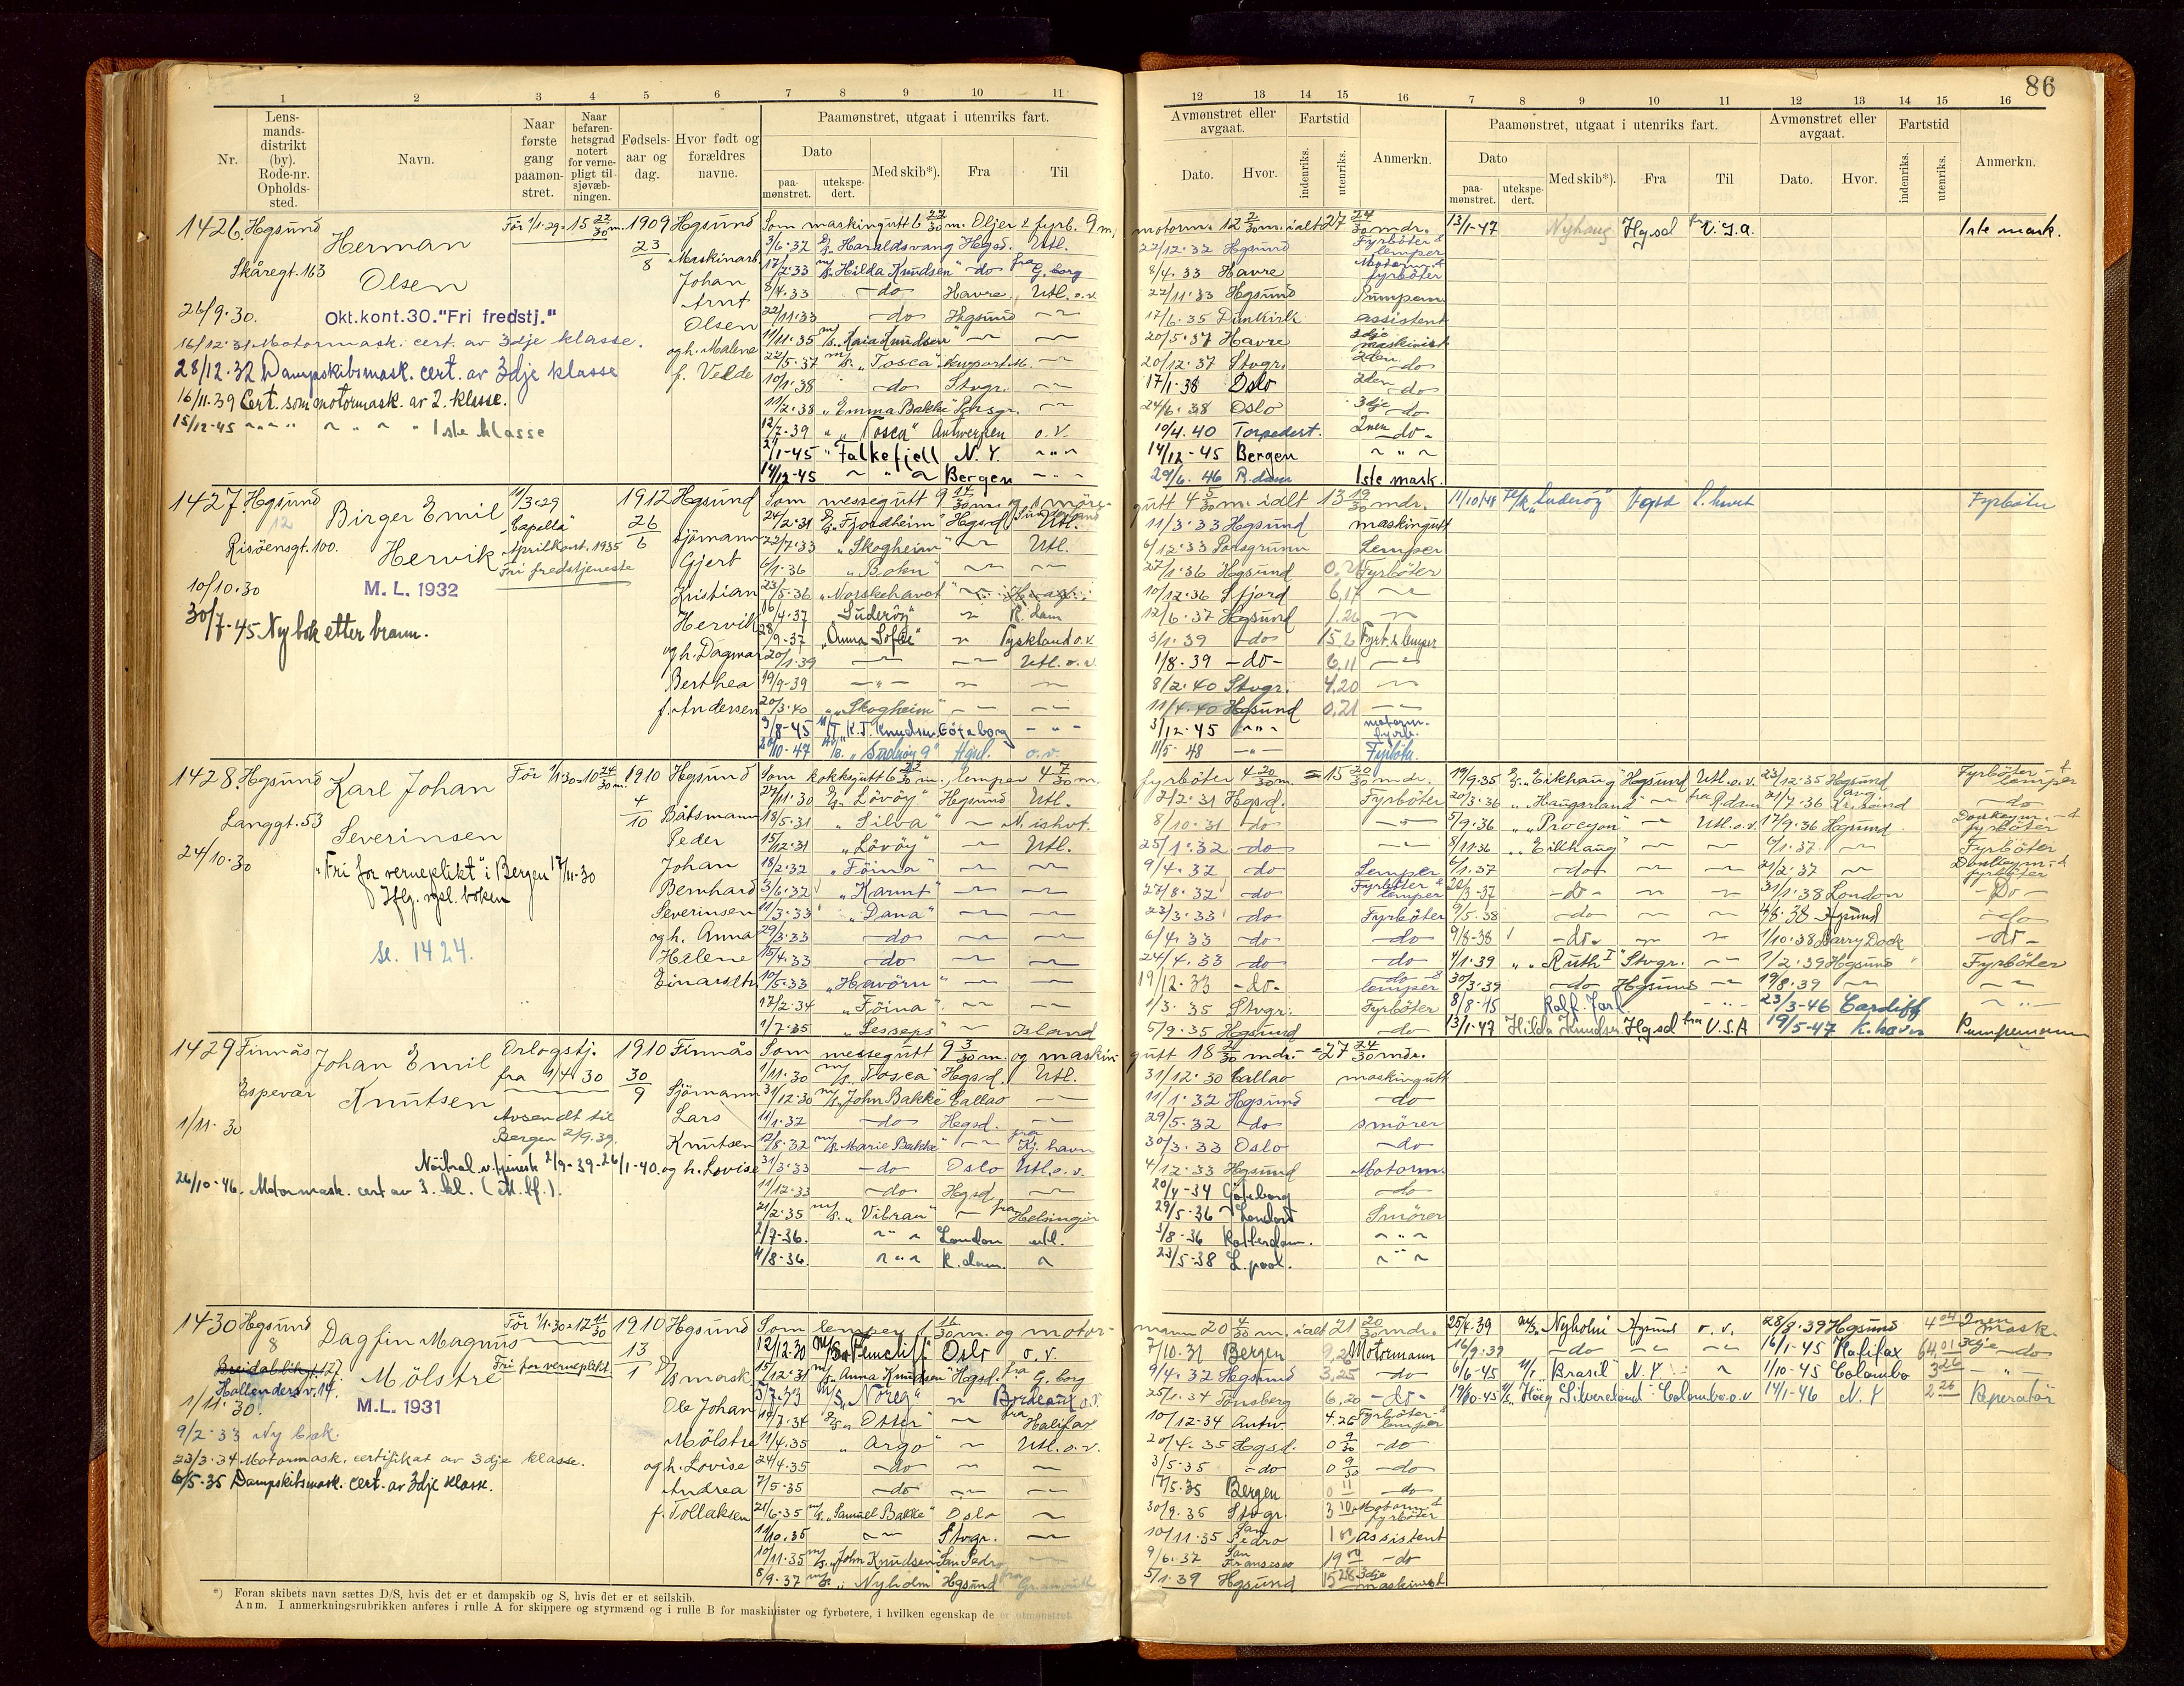 86
1 2 3 4 5 6 7 8 9 10 11
12 13 14 15 16 7 8 9 10 11 12 13 14 15 16
Nr.
Lens-
mands-
distrikt
(by).
Rode-nr.
Opholds-
sted.
Navn.
Naar
første
gang
paamøn-
stret.
Naar
befaren-
hetsgrad
notert
for verne-
pligt til
sjøvæb-
ningen.
Fødsels-
aar og
dag.
Hvor født og
forældres
navne.
Paamønstret, utgaat i utenriks fart.
Dato
paa-
mønstret.
utekspe-
dert.
Med skib*).
Fra
Til
Avmønstret eller
avgaat.
Dato.
Hvor.
Fartstid
indenriks.
utenriks.
Anmerkn.
Paamønstret, utgaat i utenriks fart.
Dato
paa-
mønstret.
utekspe-
dert.
Med skib*).
Fra
Til
Avmønstret eller
avgaat.
Dato.
Hvor.
Fartstid
indenriks.
utenriks.
Anmerkn.
1426. Hgsund
Skåregt. 163
Herman
Olsen
Før 1/1·29 = 15 22/30 m.
1909
23/8
Hgsund
Maskinarb.
Johan
Arnt
Olsen
og h. Malene
f. Velde
26/9·30.
Okt.kont.30."Fri fredstj."
16/12·31 Motormask. cert. av 3dje klasse.
28/12·32 Dampskibsmask. cert. av 3dje klasse
16/11·39 Cert. som motormask. av 2. klasse.
15/12-45 " " " " " " 1ste klasse
Som maskingutt 6 22/30 m. Oljer & fyrb. 9 m,
motorm. 12 2/30 m. ialt 27 24/30 mdr.
3/6·32 Haraldsvang Hgsd. Utl. 22/12·32 Hgsund Fyrbøter & lemper
17/2·33 "Hilda Knudsen" do fra G. borg 8/4·33 Havre Motorm. & fyrbøter
8/4·33 do Havre Utl. o. v. 22/11·33 Hgsund Pumpem.
22/11·33 do Hgsund 17/6·35 Dunkirk assistent
11/11·35 "Kaia Knudsen" 20/5·37 Havre 3dje maskinist
22/5-37 "Tosca" 20/12·37 Stvgr. 2den do
10/1·38 do Stvgr. 17/1·38 Oslo 2den do
11/2·38 "Emma Bakke" 24/6·38 Oslo 3dje do
12/7-39 "Tosca" Antwerpen o. v. 10/4·40 Torpedert. 2nen do
2/1-45 "Falkefjell N. Y. 14/12-45 Bergen
14/12-45 Bergen 29/6·46 R. dam 1ste mask.
13/1-47 Nyhaug Hgsd fra U.S.A. 1ste mask.
1427. Hgsund
12
Risøensgt. 100.
Birger Emil
Hervik
11/3·29
"Capella"
Aprilkont. 1935
Fri fredstjeneste
1912
26/6
Hgsund
Sjømann
Gjert
Kristian
Hervik
og h. Dagmar
Berthea
f. Andersen
10/10·30
M. L. 1932
30/7-45 Ny bok etter brann.
Som messegutt 9 14/30 m. og smøre-
gutt 4 5/30 m. ialt 13 19/30 mdr.
24/2·31 "Fjordheim" Hgsd. Utl. 11/3·33 Hgsund maskingutt
22/7·33 "Skogheim" Utl. 6/12·33 Porsgrunn Lemper
6/1·36 "Bokn" 27/1·36 Hgsund Fyrbøter
23/5·36 "Norskehavet" 10/12·36 6,17
16/4·37 Suderøy R. dam 12/6·37 Hgsund 1.26
28/9-37 "Anna Sofie" Tyskland o. v. 3/1·39 do Fyrb. & lemper
20/1·39 Utl. o. v. 1/8·39 do 6,11
19/9-39 8/2·40 Stvgr. 4,20
20/3·40 "Skogheim" 11/4·40 Hgsund 0,21
9/8-45 M/T K. J. Knudsen Göteborg 3/12·45 motorm. fyrb.
"Suderøy 9" Hgsd. o. v. 11/5·48 Fyrbøter
11/10/48 "Suderøy" Hgsd Fyrbøter
1428. Hgsund
Langgt. 53
Karl Johan
Severinsen
Før 1/1·30 = 10 24/30 m.
1910
4/10
Hgsund
Båtsmann
Peder
Johan
Bernhard
Severinsen
og h. Anna
Helene
Einarsdtr.
24/10·30
"Fri for verneplikt" i Bergen 17/11-30
Iflg. rgsl. boken
se. 1424.
Som kokksgutt 6 23/30 m., lemper 4 7/30 m.
fyrbøter 4 20/30 m. = 15 20/30 mdr.
27/11·30 "Løvøy" Hgsund Utl. 7/2·31 Hgsd. Fyrbøter
18/5·31 "Silva" N. ishvt. 8/10·31 do
15/12·31 "Løvøy" Utl. 25/1·32 do
18/2·32 "Föina" 9/4·32 do Lemper
3/6·32 "Karmt" 27/8·32 do Fyrbøter & lemper
11/3·33 "Dana" 23/3·33 do Fyrbøter
29/3·33 do 6/4·33 do do
15/4·33 do 24/4·33 do do
10/5·33 "Havørn" 19/12·33 do do & lemper
17/2·34 "Föina" 1/3·35 Stvgr. Fyrbøter
1/7·35 "Lesseps" Island 5/9·35 Hgsund do
19/9·35 "Eikhaug" Hgsund Utl. o. v. 23/12·35 Hgsund Fyrbøter & lemper
20/3·36 "Haugarland" fra R.dam 21/7·36 do
5/9·36 "Procyon" Utl. o. v. 17/9·36 Hgsund Donkeym. & fyrbøter
8/11·36 "Eikhaug" 6/1·37 Fyrbøter
6/1·37 do 21/2·37 Donkeym. & fyrbøter
do 31/1·38 London Do
9/5·38 do 4/8·38 Hgsund do
9/8-38 do 1/10·38 Barry Dock do
4/1·39 "Ruth I" Stvgr. 1/2·39 Hgsund Fyrbøter
30/3·39 do Hgsund 19/8·39
8/8-45 Rolf Jarl 23/3-46 Cardiff
13/1·47 Hilda Knudsen Hgsd fra U.S.A 19/5-47 K. havn Pumpemann
1429 Finnås
Espevær
Johan Emil
Knutsen
Orlogstj.
fra 1/4 30
Avsendt til
Bergen 2/9·39.
1910
30/9
Finnås
Sjømann
Lars
Knutsen
og h. Lovise
1/11·30
Nøitral.v.tjenest 2/9-39-26/1-40.
26/10-46. Motormask. cert av 3. kl.
Som messegutt 9 3/30 m. og maskin-
gutt 18 21/30 mdr. = 27 24/30 mdr.
1/11·30 "Tosca" Hgsd. Utl. 31/12·30 Callao maskingutt
31/12·30 "John Bakke" Callao 11/1·32 Hgsund do
11/1·32 do Hgsd. 29/5·32 do smører
12/8·32 "Marie Bakke" fra Kj. havn 30/3·33 Oslo do
31/3·33 do Oslo Utl. o. v. 4/12·33 Hgsund Motorm.
11/12·33 do Hgsd. 20/4-34 Göteborg do
21/2·35 "Vibran" fra Helsingør 29/5·36 London Smører
2/7-36. London utl. 3/8-36 Rotterdam.
4/8-36. R. dam. 23/5-38 L. pool.
1430 Hgsund
8
Breidablikgt. 127.
Hallenders v. 14.
Dagfin Magnus
Mölstre
Før 1/1·30 = 12 11/30
Fri for verneplikt
1910
13/1
Hgsund
D/s mask
Ole Johan
Mölstre
og h. Lovise
Andrea
f. Tollaksen
1/11·30.
M.L. 1931
9/2·33 Ny bok.
23/3·34 Motormask. certifikat av 3dje klasse.
6/5·35 Dampskibsmask. cert. av 3dje klasse.
Som lemper 1 16/30 m. og motor-
mann 20 4/30 m. ialt 21 20/30 mdr.
12/12·30 Ferncliff Oslo o. v. 7/10·31 Bergen 9,26 Motormann
15/12·31 "Anna Knudsen" Hgsd. fra G. borg 9/4·32 Hgsund 3,25 do
5/7·33 "Noreg" Bordeaux o. v. 25/1·34 Tønsberg 6,20 do
19/7·34 "Otter" fra Halifax 10/12·34 Antw. 4.26 Fyrbøter & lemper
11/4·35 "Argo" Utl. o. v. 20/4·35 Hgsd. 0 9/30 do
24/4·35 do 3/5·35 do 0 9/30 do
7/5·35 do 17/5·35 Bergen 0 11 do
21/6·35 "Samuel Bakke" Oslo 30/9·35 Stvgr. 3 10 Motorm. & fyrbøter
11/10·35 Stvgr. 10/11·35 San Pedro assistent
10/11·35 "John Knudsen" San Pedro 9/6·37 San Fransisco 19 do
8/9·37 "Nyholm" Hgsund fra 5/1·39 Hgsund 15 28 3dje maskinist
25/1·39 Nyholm Hgsund o. v. 28/8·39 Hgsund 4 04 2nen mask.
16/9·39 do 16/1-45 Halifax 64,01 3dje do
6/6-45 "Brasil" N. Y. 1/10-45 Colombo 3 26
19/10-45 Høeg Silvercloud Colombo o. v 14/1-46 N. Y 2 26 Reperatør
*) Foran skibets navn sættes D/S, hvis det er et dampskib og S, hvis det er et seilskib.
Anm. I anmerkningsrubrikken anføres i rulle A for skippere og styrmænd og i rulle B for maskinister og fyrbøtere, i hvilken egenskap de er utmønstret